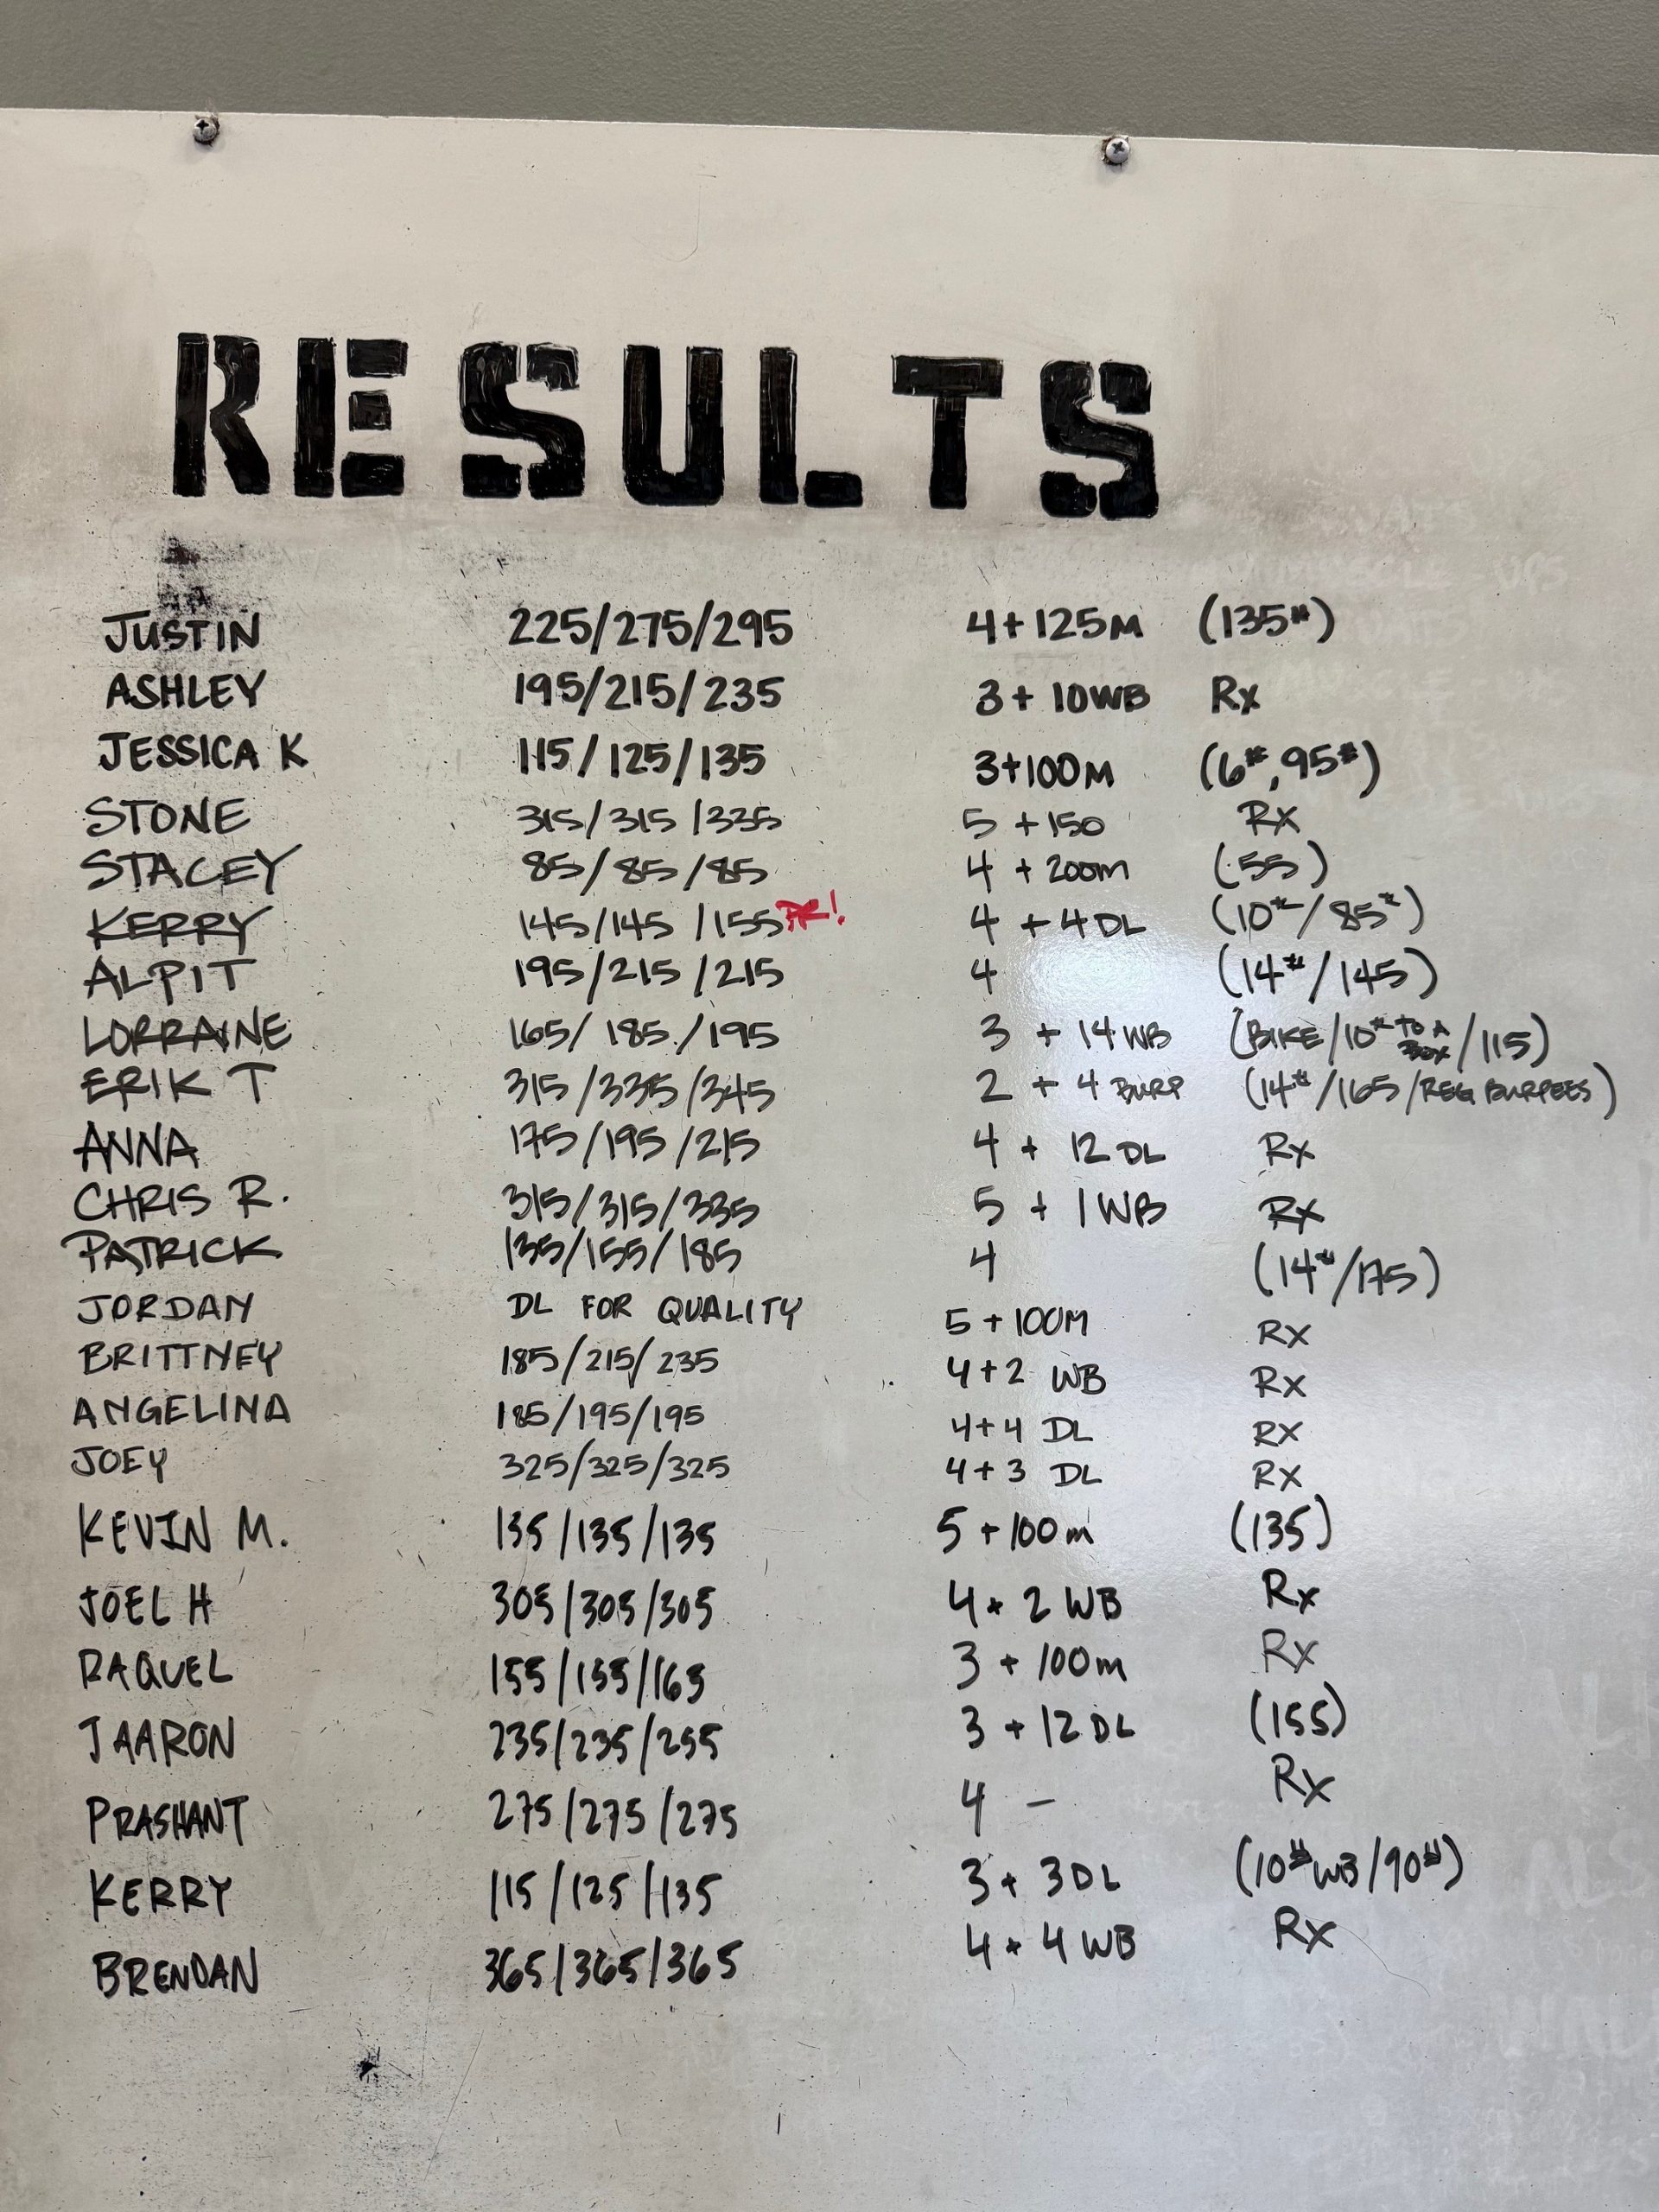 RESULTS
JUSTIN 225/275/295 4+125M (135#)
ASHLEY 195/215/235 3+10WB Rx
JESSICA K 115/125/135 3+100M (6#,95#)
STONE 315/315/335 5+150 RX
STACEY 85/85/85 4+200m (55)
KERRY 145/145/155 PR! 4+4DL (10#/85#)
ALPIT 195/215/215 4 (14#/145)
LORRAINE 165/185/195 3+14WB (BIKE/10# TO A BOX/115)
ERIK T 315/335/345 2+4 BURP (14#/165/REG BURPEES)
ANNA 175/195/215 4+12DL Rx
CHRIS R. 315/315/335 5+1WB Rx
PATRICK 135/155/185 4 (14#/175)
JORDAN DL FOR QUALITY 5+100M RX
BRITTNEY 185/215/235 4+2 WB RX
ANGELINA 185/195/195 4+4 DL RX
JOEY 325/325/325 4+3 DL RX
KEVIN M. 135/135/135 5+100m (135)
JOEL H 305/305/305 4+2 WB Rx
RAQUEL 155/155/165 3+100m Rx
JAARON 235/235/255 3+12DL (155)
PRASHANT 275/275/275 4 - Rx
KERRY 115/125/135 3+3DL (10#WB/90#)
BRENDAN 365/365/365 4+4WB Rx